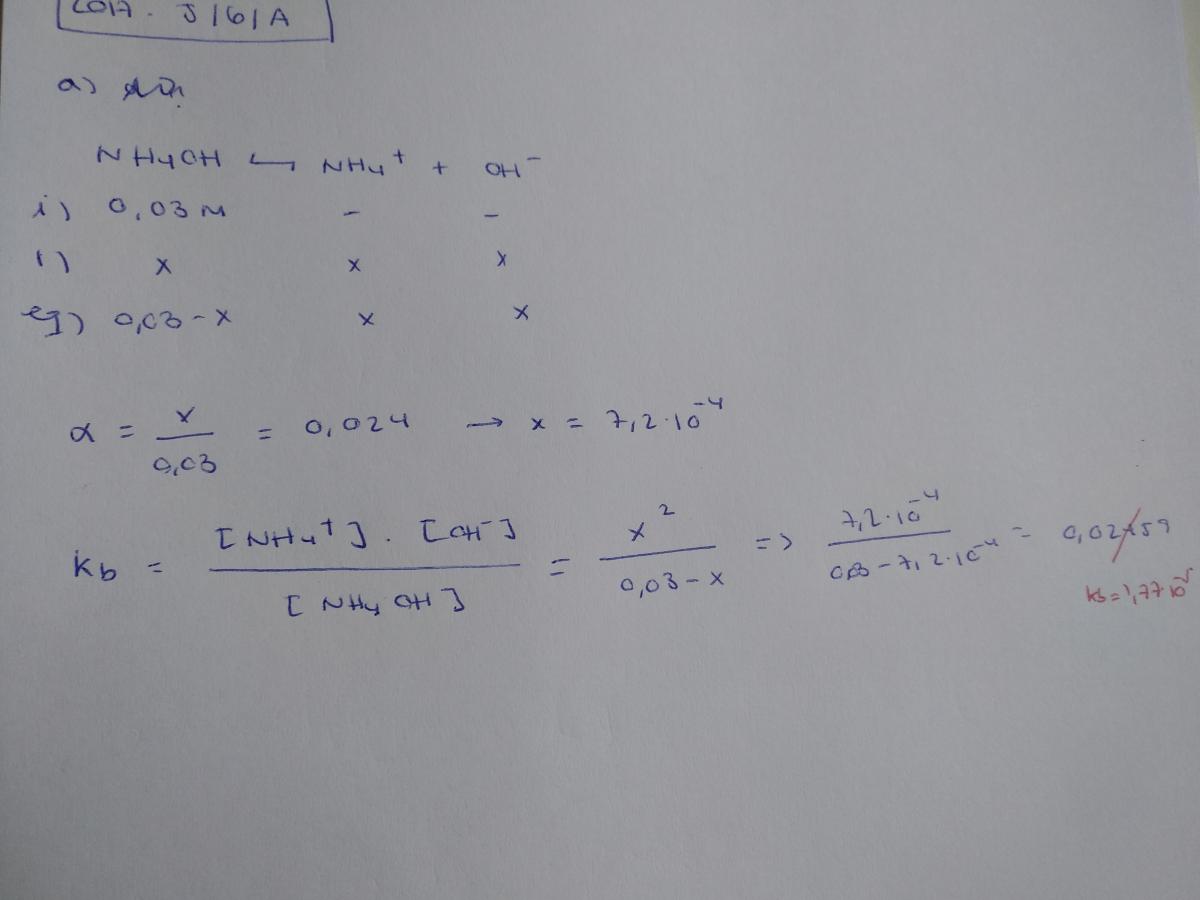 2017. J/6/A
a)
NH4OH ⇆ NH4+ + OH-
i) 0,03 M - -
r) x x x
eq) 0,03-x x x
α = x/0,03 = 0,024 → x = 7,2·10^-4
Kb = [NH4+]·[OH-]/[NH4OH] = x^2/0,03-x => 7,2·10^-4/0,03-7,2·10^-4 = 0,02459
kb=1,77·10^-5